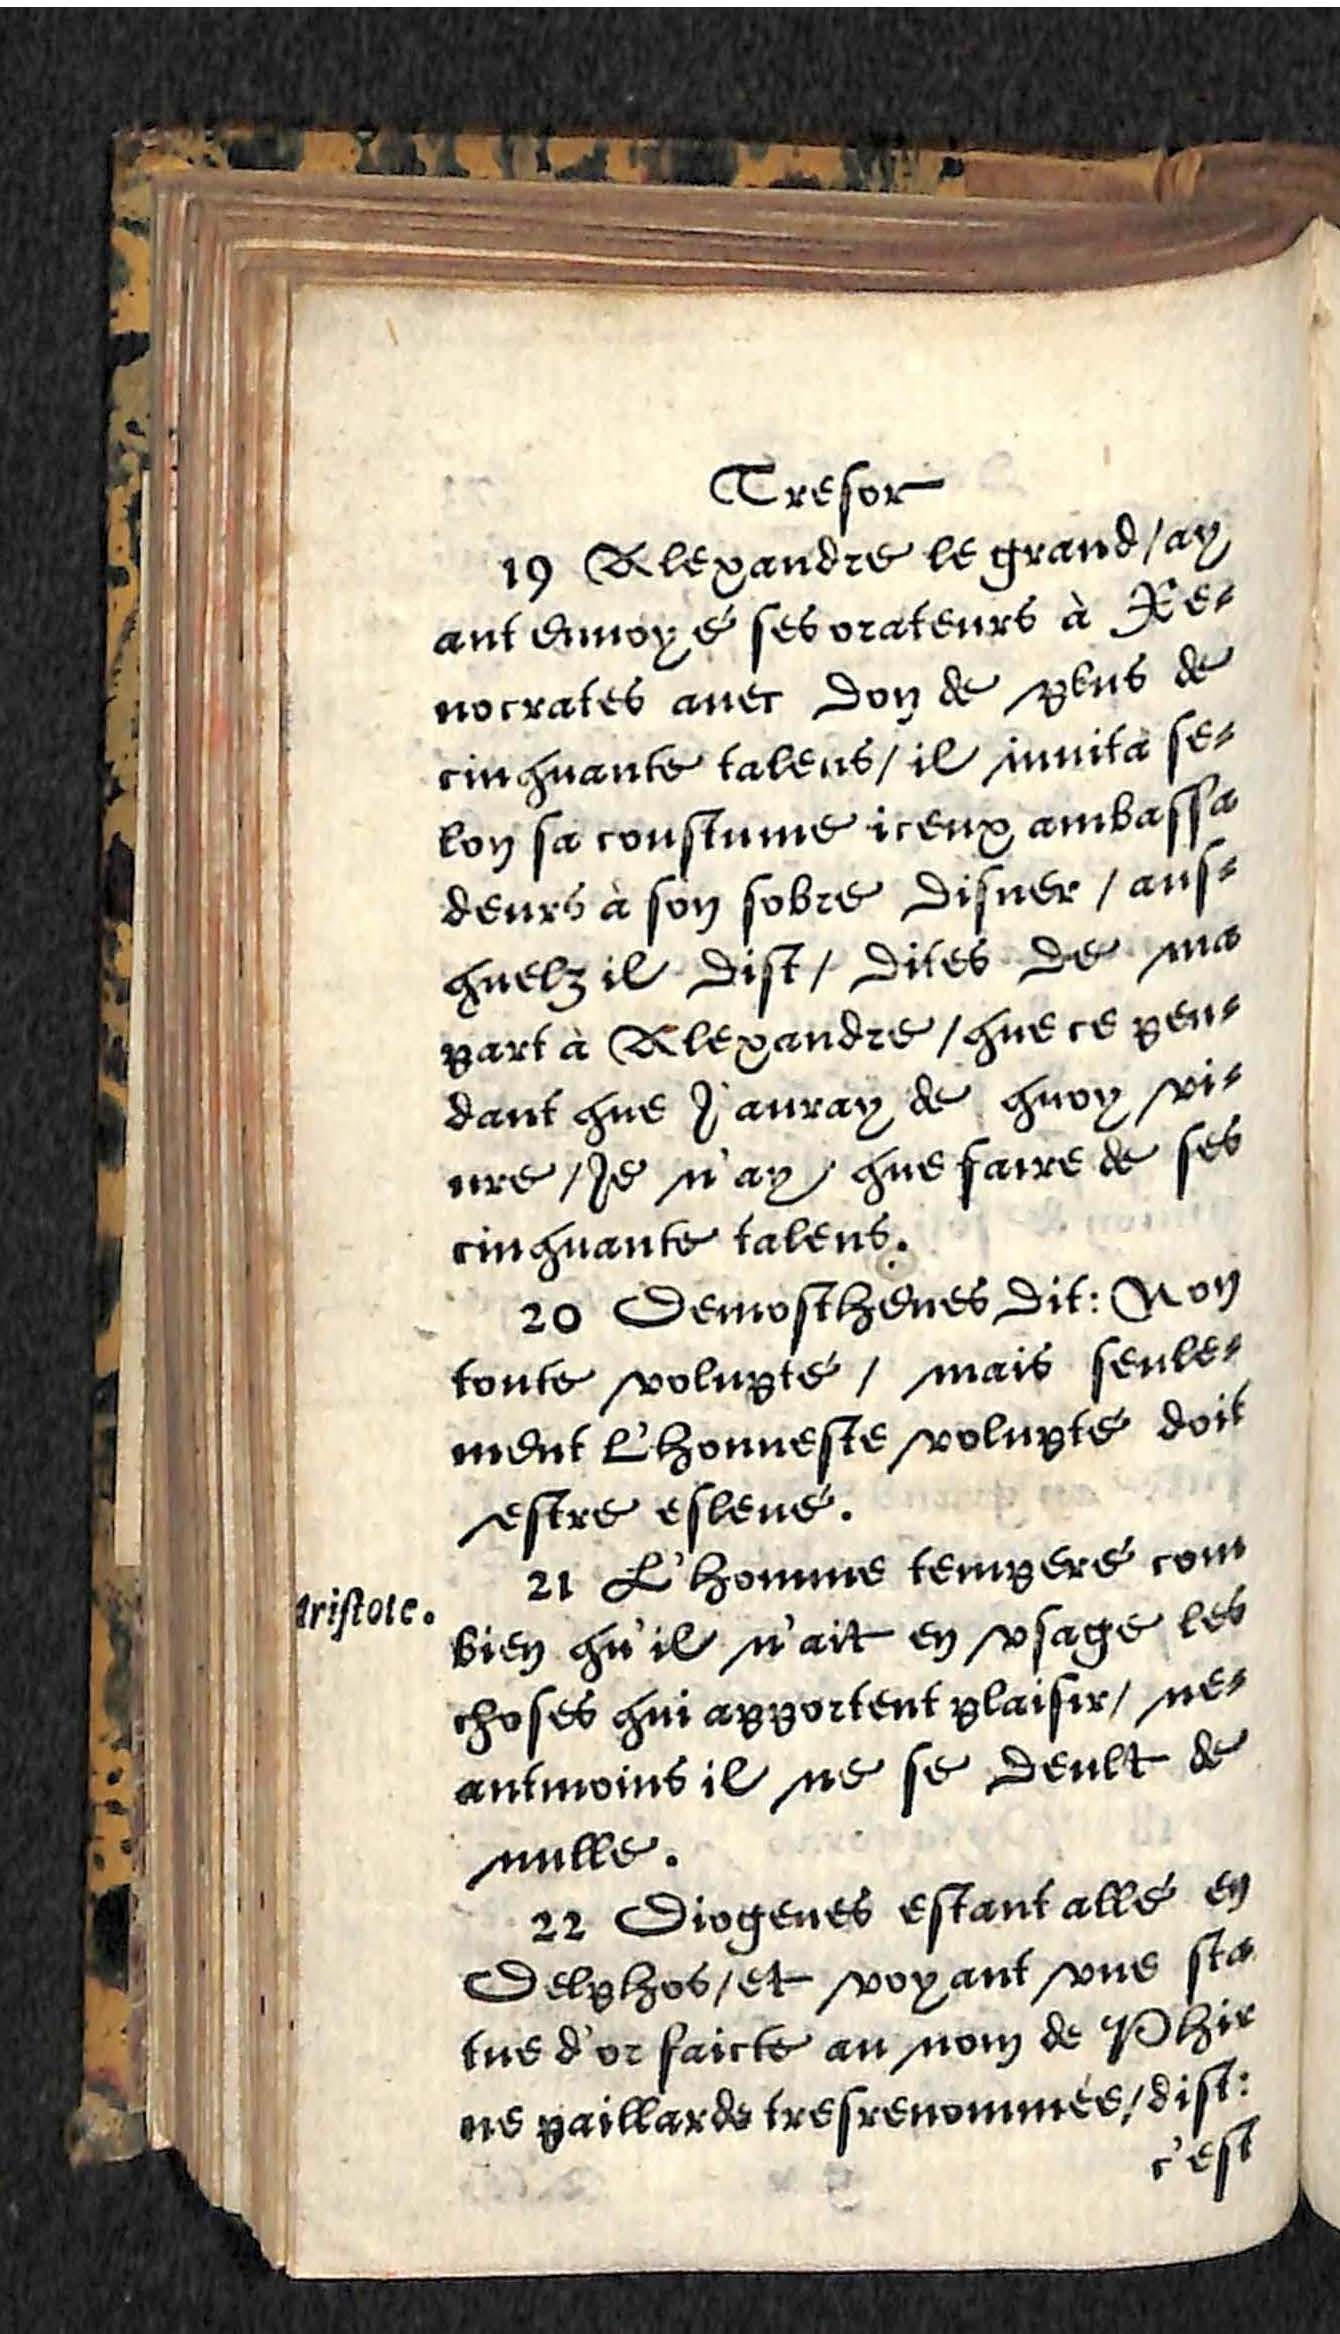 Tresor
19 Alexandre le grand/ay
ant enuoyé ses orateurs à Xe-
nocrates auec don de plus de
cinquante talens/ il inuita se-
lon sa coustume iceux ambassa
deurs à son sobre disner / aus-
quelz il dist/ dites de ma
part à Alexandre/que ce pen-
dant que J'auray de quoy vi-
ure /Je n'ay que faire de ses
cinquante talens.
20 Demosthenes dit: Non
toute volupté / mais seule-
ment l'honneste volupté doit
estre esleué.
21 L'homme temperé com
Aristote.
bien qu'il n'ait en vsage les
choses qui apportent plaisir/ ne-
antmoins il ne se deult de
nulle.
22 Diogenes estant allé en
Delphos/et voyant vne sta
tue d'or faicte au nom de Phir
ne paillarde tresrenommée/dist:
c'est